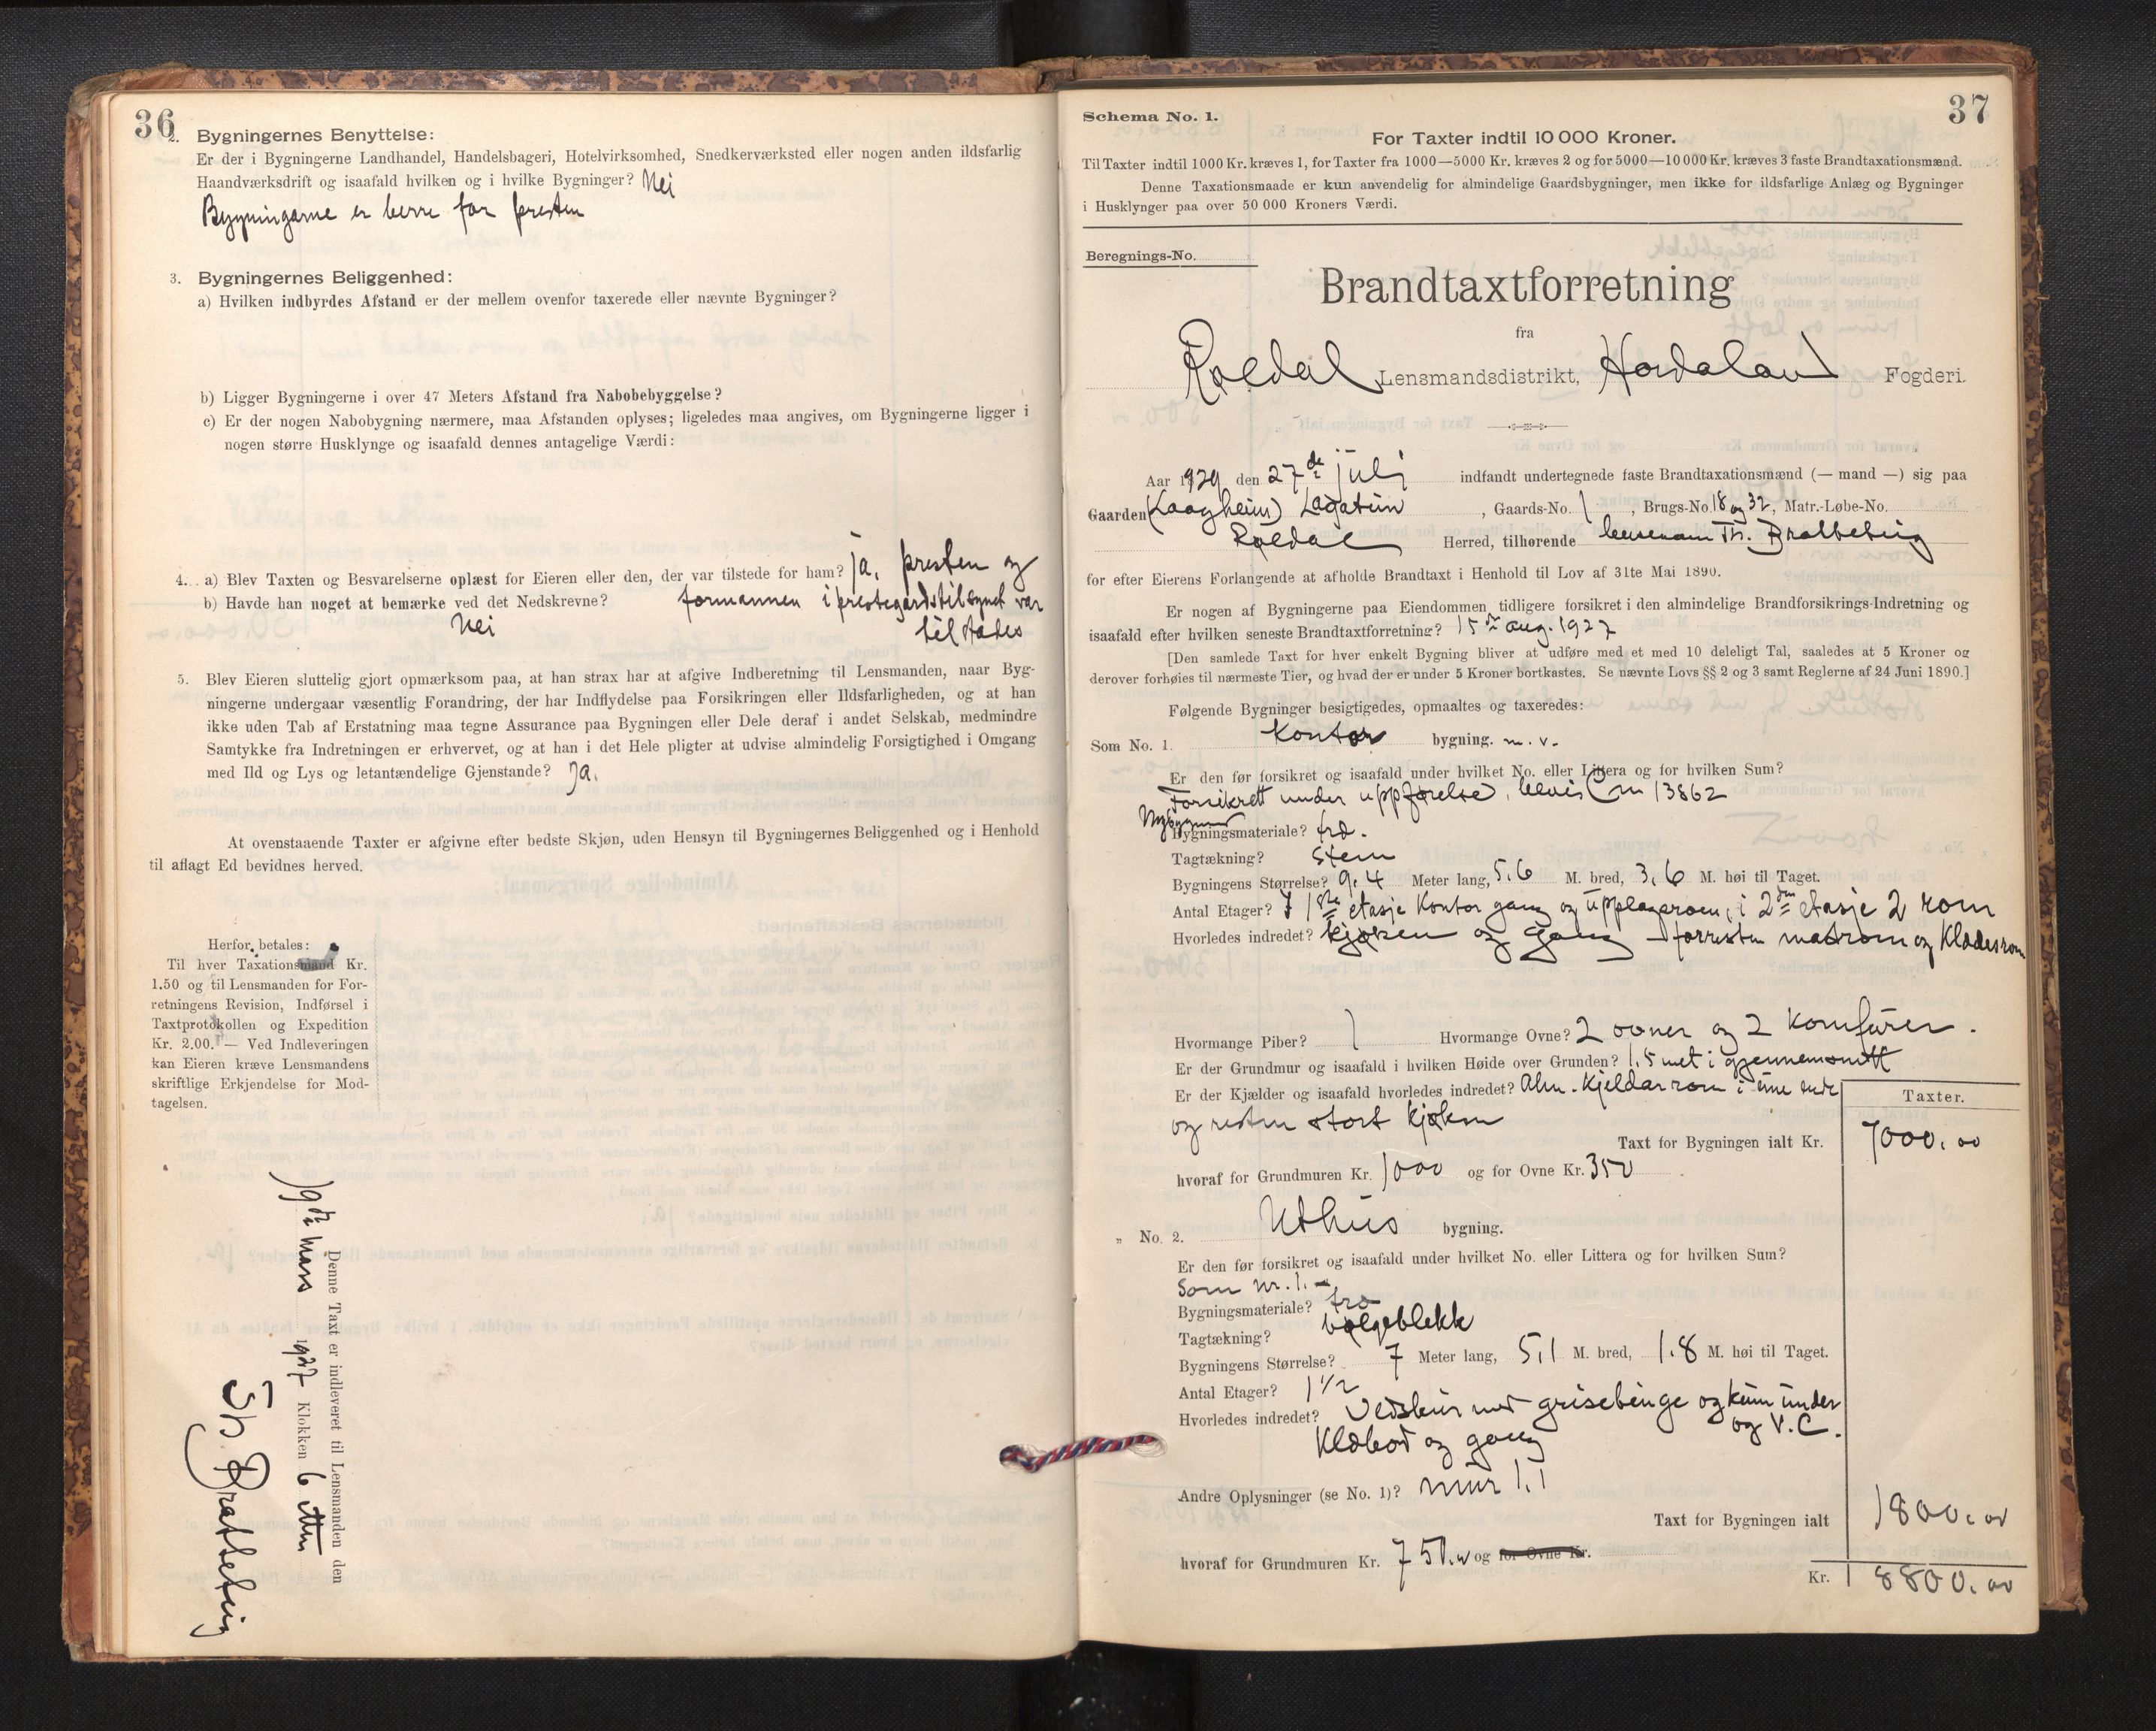 36
2. Bygningernes Benyttelse:
Er der i Bygningerne Landhandel, Handelsbageri, Hotelvirksomhed, Snedkerværksted eller nogen anden ildsfarlig
Haandværksdrift og isaafald hvilken og i hvilke Bygninger? Nei
Bygningarne er berre for presten
3. Bygningernes Beliggenhed:
a) Hvilken indbyrdes Afstand er der mellem ovenfor taxerede eller nævnte Bygninger?
b) Ligger Bygningerne i over 47 Meters Afstand fra Nabobebyggelse?
c) Er der nogen Nabobygning nærmere, maa Afstanden oplyses; ligeledes maa angives, om Bygningerne ligger i
nogen større Husklynge og isaafald dennes antagelige Værdi:
4. a) Blev Taxten og Besvarelserne oplæst for Eieren eller den, der var tilstede for ham? ja, presten og
b) Havde han noget at bemærke ved det Nedskrevne? formannen i prestegardstilsynet var
Nei til stades
5. Blev Eieren sluttelig gjort opmærksom paa, at han strax har at afgive Indberetning til Lensmanden, naar Byg-
ningerne undergaar væsentlig Forandring, der har Indflydelse paa Forsikringen eller Ildsfarligheden, og at han
ikke uden Tab af Erstatning maa tegne Assurance paa Bygningen eller Dele deraf i andet Selskab, medmindre
Samtykke fra Indretningen er erhvervet, og at han i det Hele pligter at udvise almindelig Forsigtighed i Omgang
med Ild og Lys og letantændelige Gjenstande? Ja.
At ovenstaaende Taxter er afgivne efter bedste Skjøn, uden Hensyn til Bygningernes Beliggenhed og i Henhold
til aflagt Ed bevidnes herved.
Herfor betales:
Til hver Taxationsmand Kr.
1.50 og til Lensmanden for For-
retningens Revision, Indførsel i
Taxtprotokollen og Expedition
Kr. 2.00. — Ved Indleveringen
kan Eieren kræve Lensmandens
skriftlige Erkjendelse for Mod-
tagelsen.
Denne Taxt er indleveret til Lensmanden den
19de mars 1927 Klokken 6 ettm
Th. Bratteteig
37
Schema No. 1.
For Taxter indtil 10 000 Kroner.
Til Taxter indtil 1000 Kr. kræves 1, for Taxter fra 1000—5000 Kr. kræves 2 og for 5000—10 000 Kr. kræves 3 faste Brandtaxationsmænd.
Denne Taxationsmaade er kun anvendelig for almindelige Gaardsbygninger, men ikke for ildsfarlige Anlæg og Bygninger
i Husklynger paa over 50 000 Kroners Værdi.
Beregnings-No.
Brandtaxtforretning
fra
Røldal Lensmandsdistrikt, Hordaland Fogderi.
Aar 1929 den 27de juli indfandt undertegnede faste Brandtaxationsmænd (— mand —) sig paa
Gaarden (Laagheim) Lagatun, Gaards-No. 1, Brugs-No. 18 og 32, Matr.-Løbe-No.
Røldal Herred, tilhørende lensmann Th. Bratteteig
for efter Eierens Forlangende at afholde Brandtaxt i Henhold til Lov af 31te Mai 1890.
Er nogen af Bygningerne paa Eiendommen tidligere forsikret i den almindelige Brandforsikrings-Indretning og
isaafald efter hvilken seneste Brandtaxtforretning? 15de aug. 1927
[Den samlede Taxt for hver enkelt Bygning bliver at udføre med et med 10 deleligt Tal, saaledes at 5 Kroner og
derover forhøies til nærmeste Tier, og hvad der er under 5 Kroner bortkastes. Se nævnte Lovs §§ 2 og 3 samt Reglerne af 24 Juni 1890.]
Følgende Bygninger besigtigedes, opmaaltes og taxeredes:
Som No. 1. Kontor bygning. m. v.
Er den før forsikret og isaafald under hvilket No. eller Littera og for hvilken Sum?
Forsikrett under uppførelse, bevis nr 13862
Bygningsmateriale? tre.
Tagtækning? Stein
Bygningens Størrelse? 9,4 Meter lang, 5,6 M. bred, 3,6 M. høi til Taget.
Antal Etager? I 1ste etasje Kontor gang og upplagsrom, i 2den etasje 2 rom
Hvorledes indredet? kjøken og gang - forresten matrom og Klædesrom
Hvormange Piber? 1 Hvormange Ovne? 2 ovner og 2 komfurer.
Er der Grundmur og isaafald i hvilken Høide over Grunden? 1,5 met i gjennemsnitt
Er der Kjælder og isaafald hvorledes indredet? Alm. Kjeldarrom i eine ende
og resten stort kjøken
Taxter.
Taxt for Bygningen ialt Kr. 7000,00
hvoraf for Grundmuren Kr. 1000 og for Ovne Kr. 350
„ No. 2. Uthus bygning.
Er den før forsikret og isaafald under hvilket No. eller Littera og for hvilken Sum?
Som nr. 1. -
Bygningsmateriale? tre
Tagtækning? bølgeblekk
Bygningens Størrelse? 7 Meter lang, 5,1 M. bred, 1.8 M. høi til Taget.
Antal Etager? 1 1/2
Hvorledes indredet? Vedskur med grisebinge og kum under
Klebod og gang og V.C.
Andre Oplysninger (se No. 1)? mur 1.1
Taxt for Bygningen ialt 1800,00
hvoraf for Grundmuren Kr. 750.00 og for Ovne Kr.
Kr. 8800,00